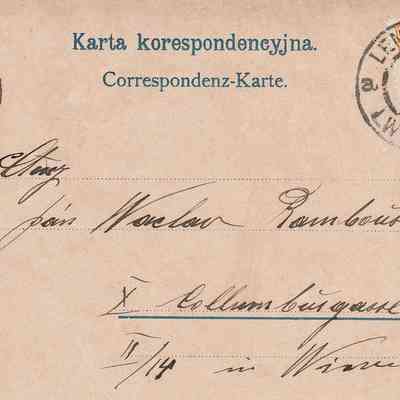 Karta korespondencyjna.
Correspondenz-Karte.
LEM
MT
a
pán Waclav Rambous
X Collumbusgasse
II/14 in Wien